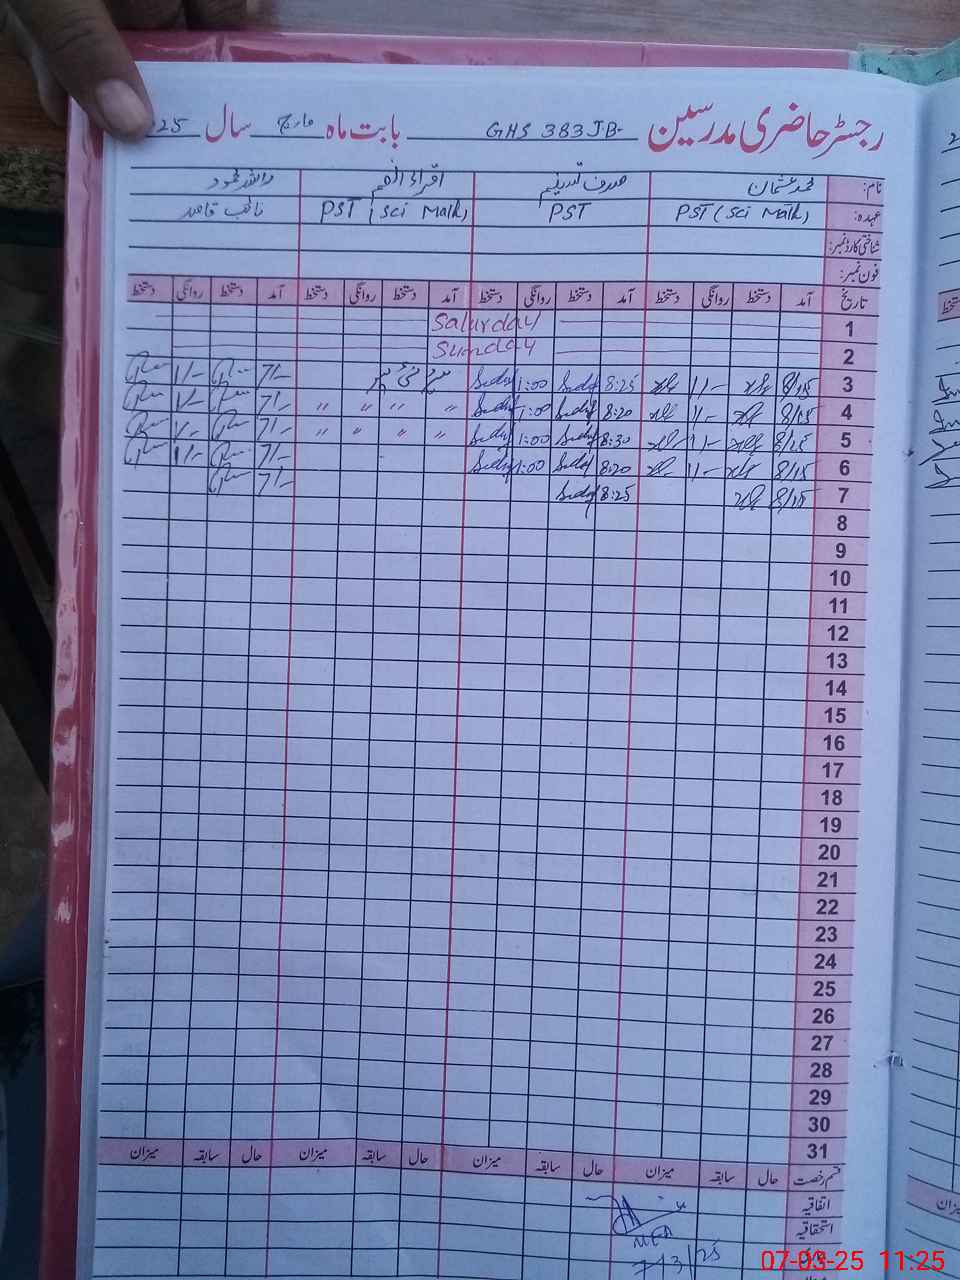 رجسٹر حاضری مدرسین GHS 383 JB- بابت ماہ مارچ سال 25
نام: محمد عثمان
عہدہ: PST (Sci Math) PST PST (Sci Math) نائب قاصد
شناختی کارڈ نمبر:
فون نمبر:
تاریخ آمد دستخط روانگی دستخط آمد دستخط روانگی دستخط آمد دستخط روانگی دستخط آمد دستخط روانگی دستخط
1 Saturday
2 Sunday
3 8/15 1/- 8:25 1:00 7/- 1/-
4 8/15 1/- 8:20 1:00 " " " " 7/- 1/-
5 8/25 1/- 8:30 1:00 " " " " 7/- 1/-
6 8/15 1/- 8:20 1:00 7/- 1/-
7 8/15 8:25 7/-
8
9
10
11
12
13
14
15
16
17
18
19
20
21
22
23
24
25
26
27
28
29
30
31
قسم رخصت حال سابقہ میزان حال سابقہ میزان حال سابقہ میزان حال سابقہ میزان
اتفاقیہ
استحقاقیہ
MEA
7/3/25
07-03-25 11:25